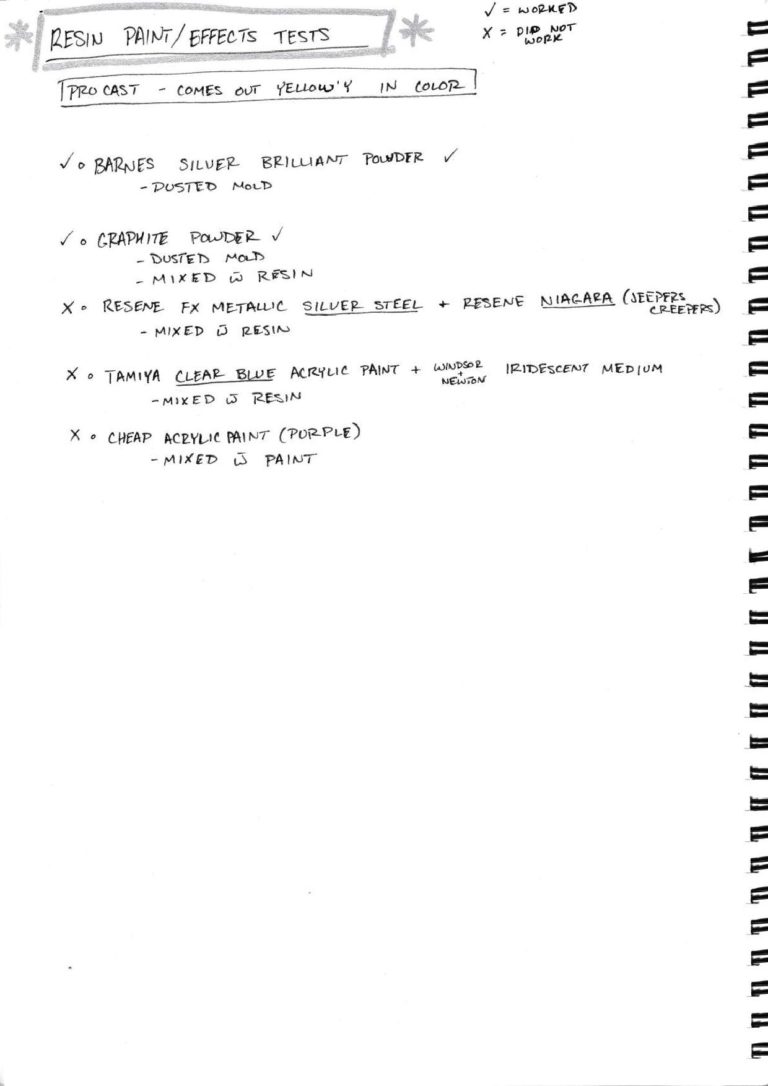 RESIN PAINT/EFFECTS TESTS
✓ = WORKED
X = DID NOT
WORK
PROCAST - COMES OUT YELLOW'Y IN COLOR
✓ o BARNES SILVER BRILLIANT POWDER ✓
- DUSTED MOLD
✓ o GRAPHITE POWDER ✓
- DUSTED MOLD
- MIXED w̄ RESIN
X o RESENE FX METALLIC SILVER STEEL + RESENE NIAGARA (JEEPERS
CREEPERS)
- MIXED w̄ RESIN
X o TAMIYA CLEAR BLUE ACRYLIC PAINT + WINDSOR + NEWTON IRIDESCENT MEDIUM
- MIXED w̄ RESIN
X o CHEAP ACRYLIC PAINT (PURPLE)
- MIXED w̄ PAINT